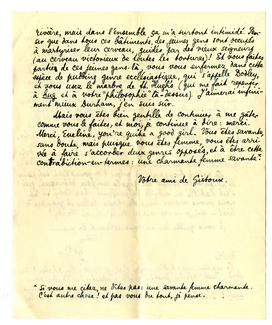 rivère, mais dans l'ensemble ça m'a surtout intimidé. Pen-
ser que dans tous ces bâtiments, des jeunes gens sont occupés
à martyriser leur cerveau, guidés par des vieux seigneurs
(au cerveau victorieux de toutes les tortures). Et vous faites
partie de ces jeunes gens-là, vous vous enfermez dans cette
espèce de pudding genre ecclésiastique, qui s'appelle Bodley,
et vous avez le marbre de (qui me fait repenser
à et votre philosophie là-dessus). J'aimerai infini-
ment mieux Durham, j'en suis sûr.
Mais vous êtes bien gentille de continuer à me gâter
comme vous le faites, et moi, je continue à dire: merci.
Merci, Eveline, you're quite a good girl. Vous êtes savante,
sans doute, mais puisque vous êtes femme, vous êtes arri-
vée à faire s'accorder deux genres opposés, et à être cette
contradiction-en-termes: une charmante femme savante*.
Votre ami de Gistoux.
* Si vous me citez, ne dites pas: une savante femme charmante.
C'est autre chose! et pas vous du tout, je pense.